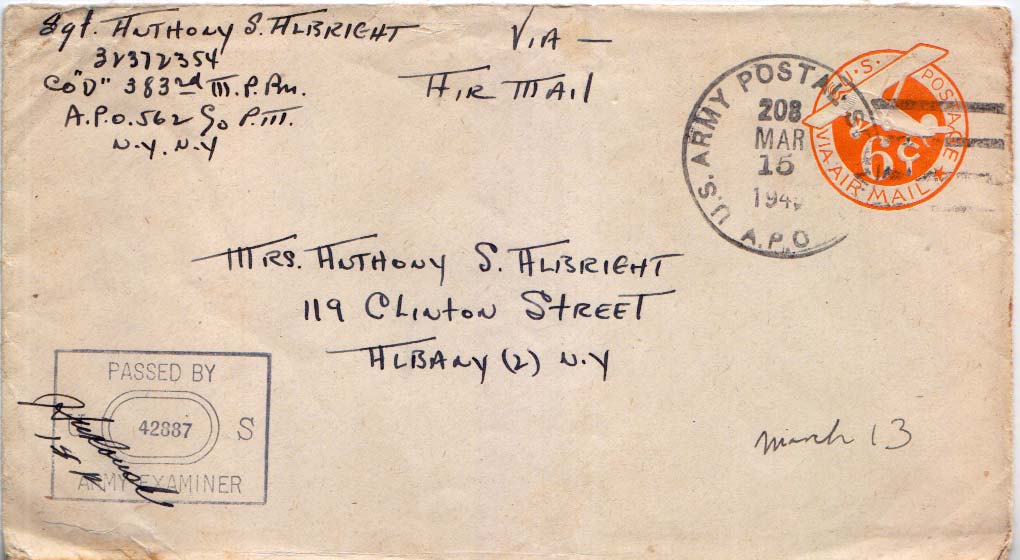 Sgt. Anthony S. Albright
32372354
Co "D" 383rd M.P. Bn.
A.P.O. 562 % P.M.
N.Y. N.Y
Via —
Air Mail
U.S. ARMY POSTAL S
208
MAR
15
194
A.P.O
U.S. POSTAGE
6¢
VIA AIR MAIL
Mrs. Anthony S. Albright
119 Clinton Street
Albany (2) N.Y
PASSED BY
42887 S
ARMY EXAMINER
march 13